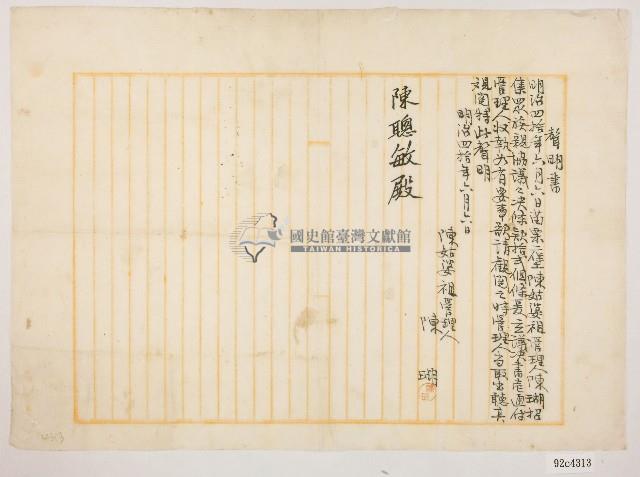 聲明書
明治四拾年六月六日苗栗一堡陳姑婆祖管理人陳瑚招
集眾族親協議之決條款拾弍個條爰立議決書壱通付
管理人收執如有要事欲請觀閱之時管理人當取出聽其
觀閱特此聲明
明治四拾年六月六日
陳姑婆祖管理人
陳 瑚
陳聰敏殿
國史館臺灣文獻館
TAIWAN HISTORICA
92c4313